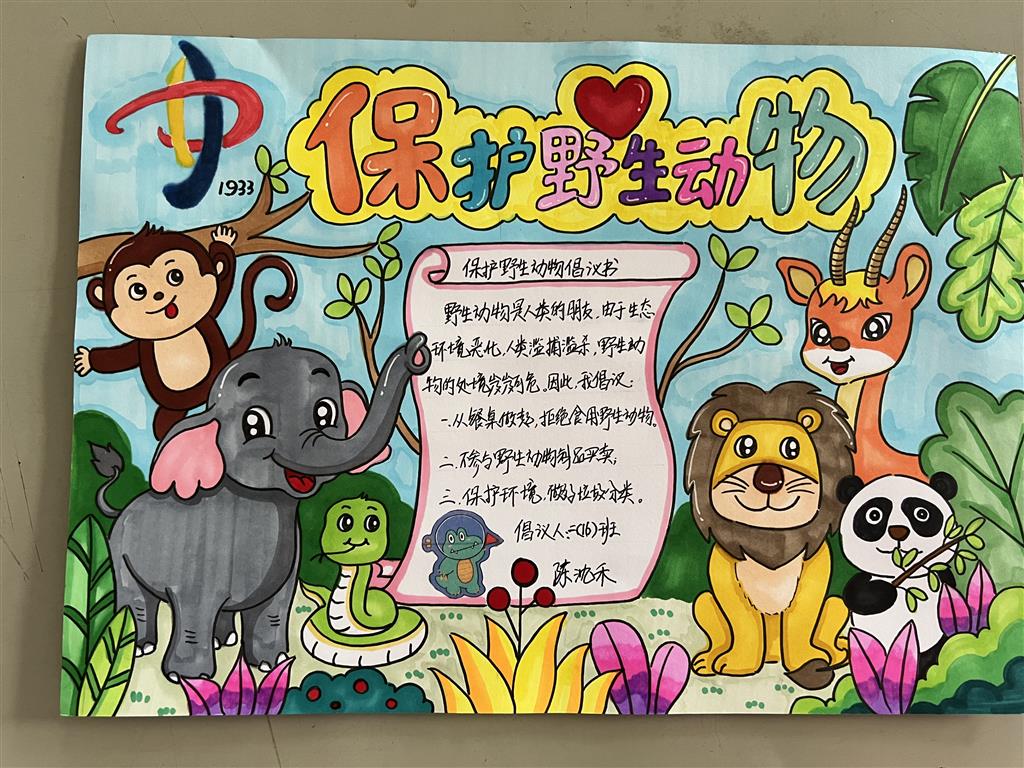 1933
保护野生动物
保护野生动物倡议书
野生动物是人类的朋友，由于生态
环境恶化，人类滥捕滥杀，野生动
物的处境岌岌可危。因此，我倡议：
一.从餐桌做起，拒绝食用野生动物。
二.不参与野生动物制品买卖；
三.保护环境，做好垃圾分类。
倡议人：二（16）班